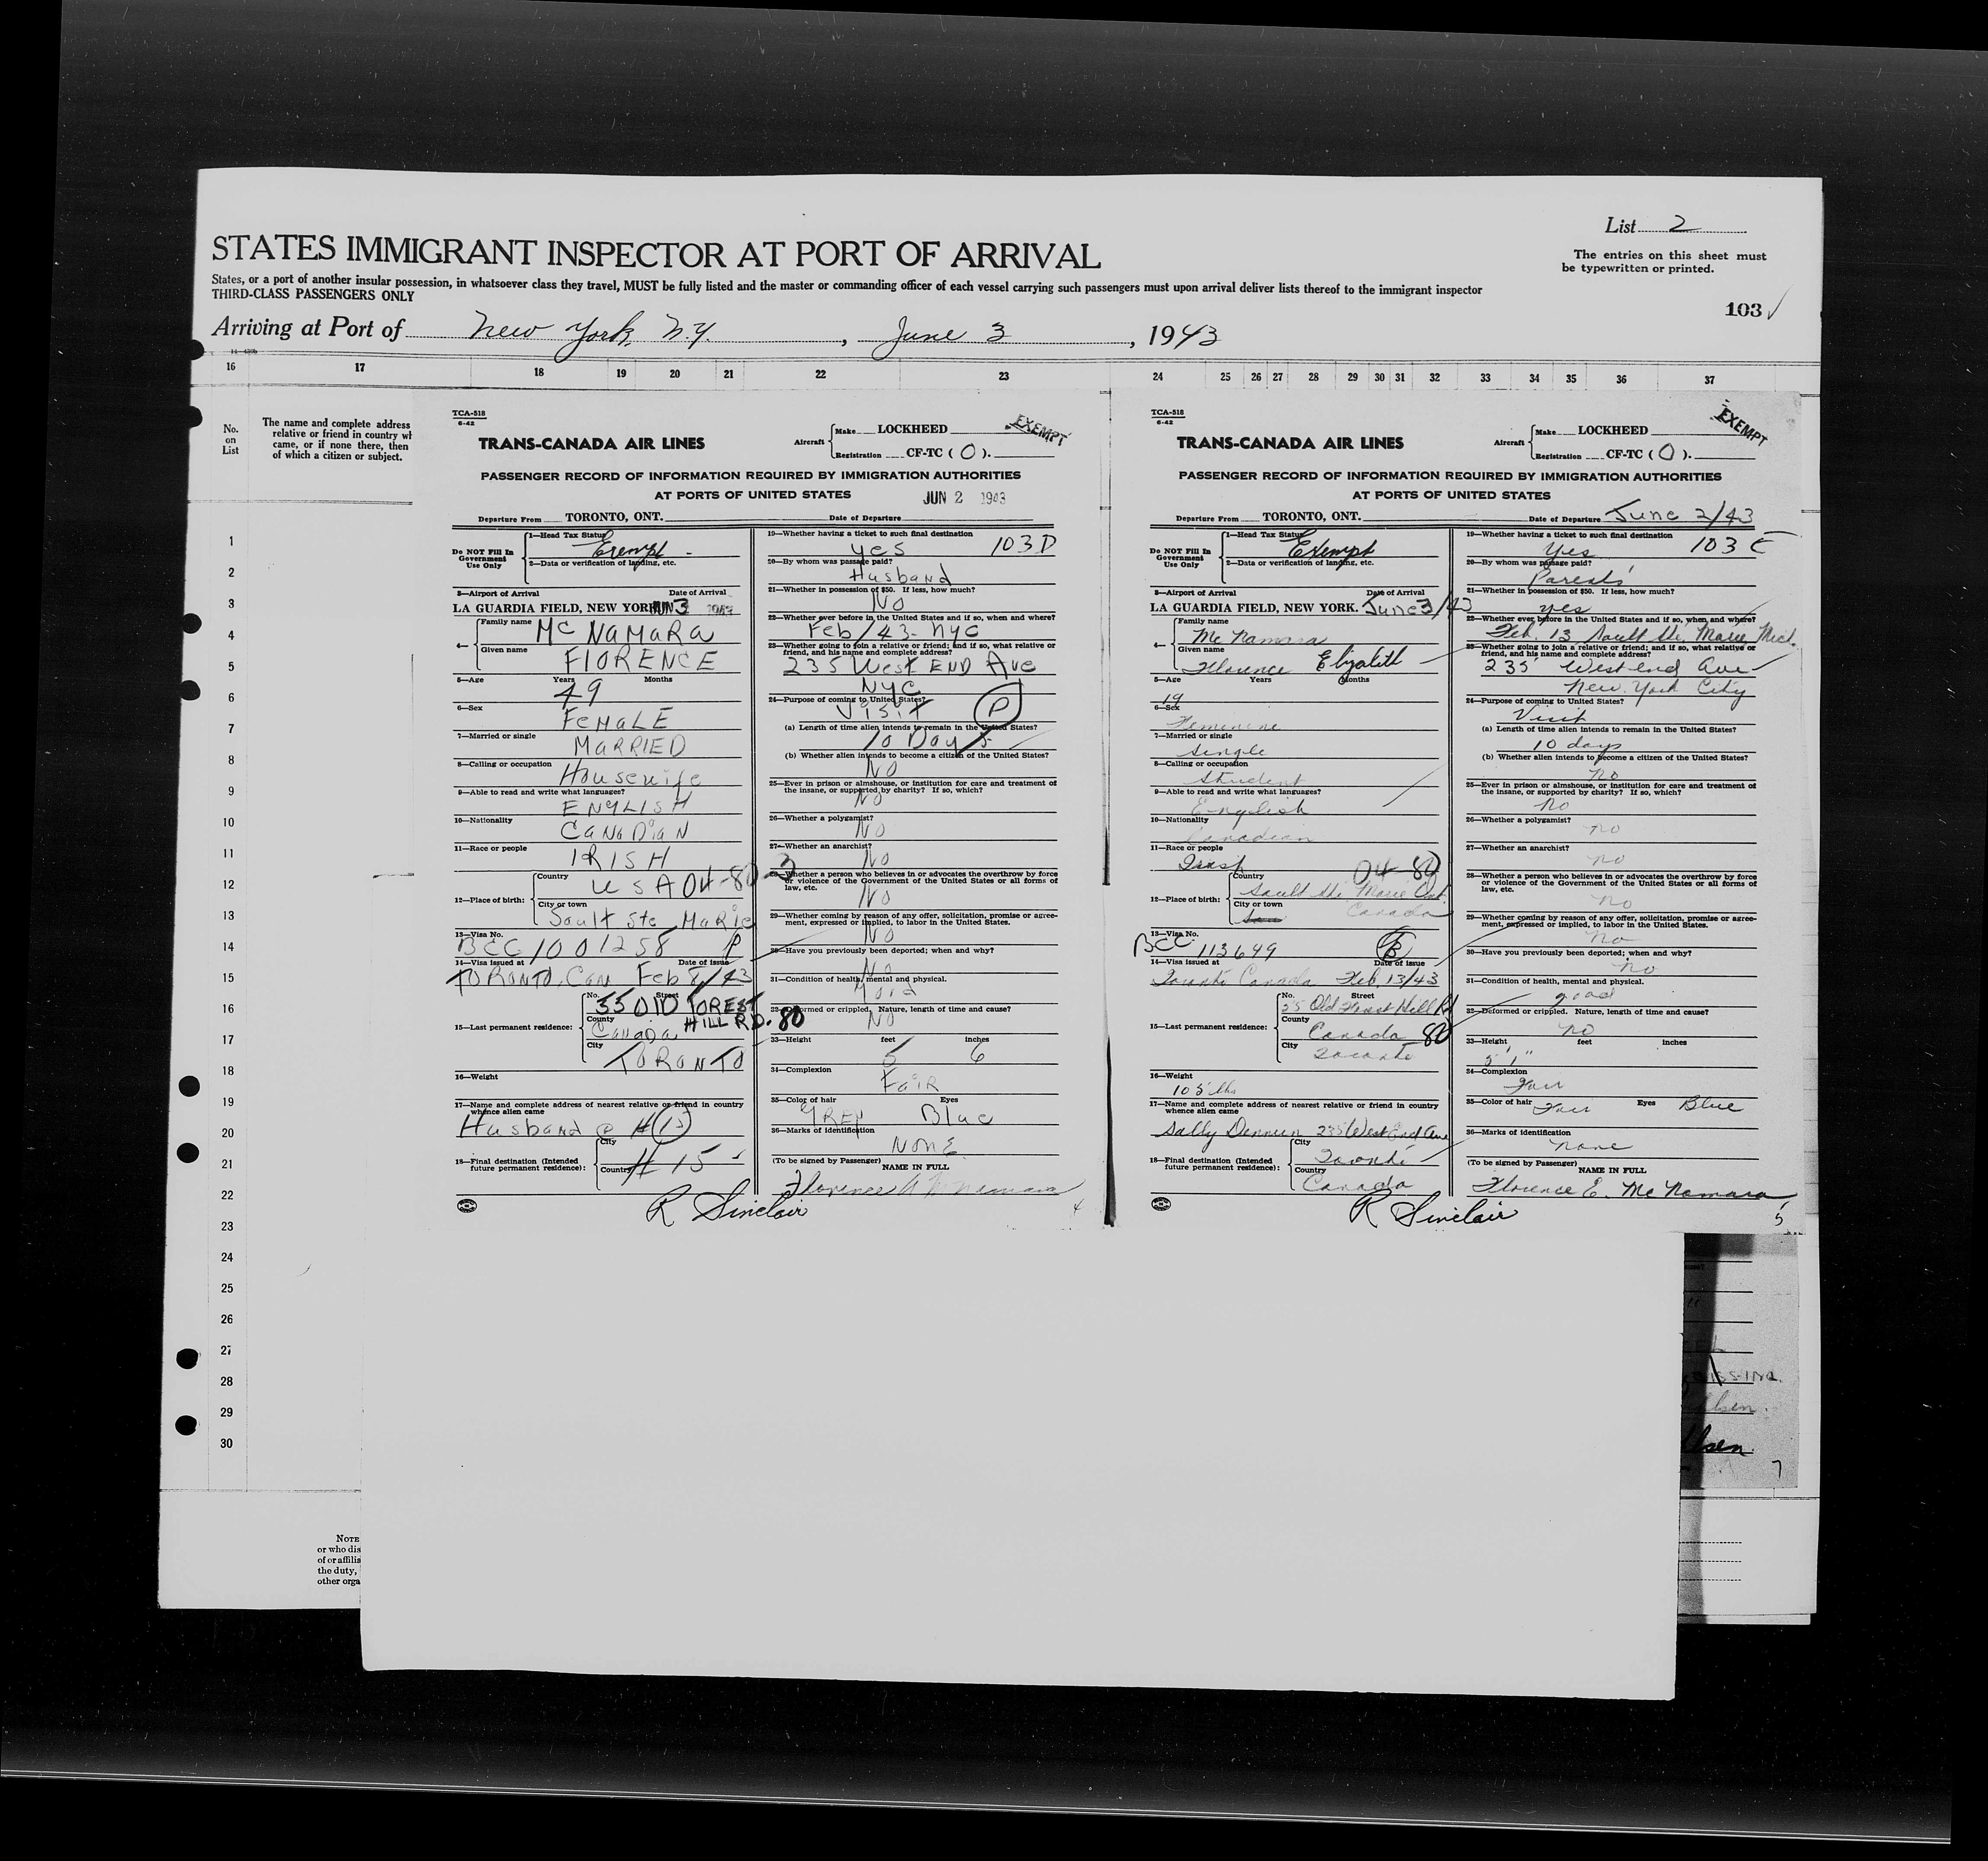 List 2
STATES IMMIGRANT INSPECTOR AT PORT OF ARRIVAL
The entries on this sheet must
be typewritten or printed.
States, or a port of another insular possession, in whatsoever class they travel, MUST be fully listed and the master or commanding officer of each vessel carrying such passengers must upon arrival deliver lists thereof to the immigrant inspector
THIRD-CLASS PASSENGERS ONLY
103 ✓
Arriving at Port of New York, N.Y., June 3, 1943
16 17 18 19 20 21 22 23 24 25 26 27 28 29 30 31 32 33 34 35 36 37
No.
on
List
The name and complete address
relative or friend in country wh
came, or if none there, then
of which a citizen or subject.
1
2
3
4
5
6
7
8
9
10
11
12
13
14
15
16
17
18
19
20
21
22
23
24
25
26
27
28
29
30
NOTE
or who dis
of or affilia
the duty,
other orga
TCA-518
6-42
TRANS-CANADA AIR LINES
Aircraft
Make LOCKHEED
Registration CF-TC ( O ).
EXEMPT
PASSENGER RECORD OF INFORMATION REQUIRED BY IMMIGRATION AUTHORITIES
AT PORTS OF UNITED STATES
JUN 2 1943
Departure From TORONTO, ONT.
Date of Departure
Do NOT Fill In
Government
Use Only
1—Head Tax Status
Exempt -
2—Data or verification of landing, etc.
3—Airport of Arrival Date of Arrival
LA GUARDIA FIELD, NEW YORK JUN 3 1943
4—
Family name
McNAMARA
Given name
FLORENCE
5—Age Years Months
49
6—Sex
FEMALE
7—Married or single
MARRIED
8—Calling or occupation
Housewife
9—Able to read and write what languages?
ENGLISH
10—Nationality
CANADIAN
11—Race or people
IRISH
12—Place of birth:
Country
USA 04-80-3
City or town
Sault Ste. Marie
13—Visa No.
BCC 1001258 P
14—Visa issued at Date of issue
TORONTO, Can Feb 8/43
15—Last permanent residence:
No. Street
35 Old FOREST
HILL RD. 80
County
Canada
City
TORONTO
16—Weight
17—Name and complete address of nearest relative or friend in country
whence alien came
Husband @ # 15
18—Final destination (Intended
future permanent residence):
City
Country
# 15
19—Whether having a ticket to such final destination
yes 103 D
20—By whom was passage paid?
Husband
21—Whether in possession of $50. If less, how much?
No
22—Whether ever before in the United States and if so, when and where?
Feb/43 - NYC
23—Whether going to join a relative or friend; and if so, what relative or
friend, and his name and complete address?
235 West END Ave
NYC
24—Purpose of coming to United States?
Visit P
(a) Length of time alien intends to remain in the United States?
10 Days
(b) Whether alien intends to become a citizen of the United States?
No
25—Ever in prison or almshouse, or institution for care and treatment of
the insane, or supported by charity? If so, which?
No
26—Whether a polygamist?
No
27—Whether an anarchist?
No
28—Whether a person who believes in or advocates the overthrow by force
or violence of the Government of the United States or all forms of
law, etc.
No
29—Whether coming by reason of any offer, solicitation, promise or agree-
ment, expressed or implied, to labor in the United States.
No
30—Have you previously been deported; when and why?
No
31—Condition of health, mental and physical.
Good
32—Deformed or crippled. Nature, length of time and cause?
No
33—Height feet inches
5 6
34—Complexion
Fair
35—Color of hair Eyes
GREY Blue
36—Marks of identification
NONE
(To be signed by Passenger)
NAME IN FULL
Florence A McNamara
R Sinclair
4
TCA-518
6-42
TRANS-CANADA AIR LINES
Aircraft
Make LOCKHEED
Registration CF-TC ( O ).
EXEMPT
PASSENGER RECORD OF INFORMATION REQUIRED BY IMMIGRATION AUTHORITIES
AT PORTS OF UNITED STATES
Departure From TORONTO, ONT.
Date of Departure June 2/43
Do NOT Fill In
Government
Use Only
1—Head Tax Status
Exempt
2—Data or verification of landing, etc.
3—Airport of Arrival Date of Arrival
LA GUARDIA FIELD, NEW YORK. June 3/43
4—
Family name
McNamara
Given name
Florence Elizabeth
5—Age Years Months
19
6—Sex
Feminine
7—Married or single
single
8—Calling or occupation
student
9—Able to read and write what languages?
English
10—Nationality
Canadian
11—Race or people
Irish 04-80
12—Place of birth:
Country
Sault Ste. Marie Ont.
City or town
Canada
13—Visa No.
BCC 113649
14—Visa issued at Date of issue
Toronto Canada Feb. 13/43
15—Last permanent residence:
No. Street
35 Old Forest Hill Rd
County
Canada 80
City
Toronto
16—Weight
105 lbs
17—Name and complete address of nearest relative or friend in country
whence alien came
Sally 235 West End Ave
18—Final destination (Intended
future permanent residence):
City
Toronto
Country
Canada
19—Whether having a ticket to such final destination
Yes 103 E
20—By whom was passage paid?
Parents
21—Whether in possession of $50. If less, how much?
yes
22—Whether ever before in the United States and if so, when and where?
Feb. 13 Sault Ste. Marie, Mich.
23—Whether going to join a relative or friend; and if so, what relative or
friend, and his name and complete address?
235 West end Ave
New York City
24—Purpose of coming to United States?
Visit
(a) Length of time alien intends to remain in the United States?
10 days
(b) Whether alien intends to become a citizen of the United States?
no
25—Ever in prison or almshouse, or institution for care and treatment of
the insane, or supported by charity? If so, which?
no
26—Whether a polygamist?
no
27—Whether an anarchist?
no
28—Whether a person who believes in or advocates the overthrow by force
or violence of the Government of the United States or all forms of
law, etc.
no
29—Whether coming by reason of any offer, solicitation, promise or agree-
ment, expressed or implied, to labor in the United States.
no
30—Have you previously been deported; when and why?
no
31—Condition of health, mental and physical.
good
32—Deformed or crippled. Nature, length of time and cause?
no
33—Height feet inches
5' 1"
34—Complexion
Fair
35—Color of hair Fair Eyes Blue
36—Marks of identification
none
(To be signed by Passenger)
NAME IN FULL
Florence E. McNamara
R Sinclair
5
7